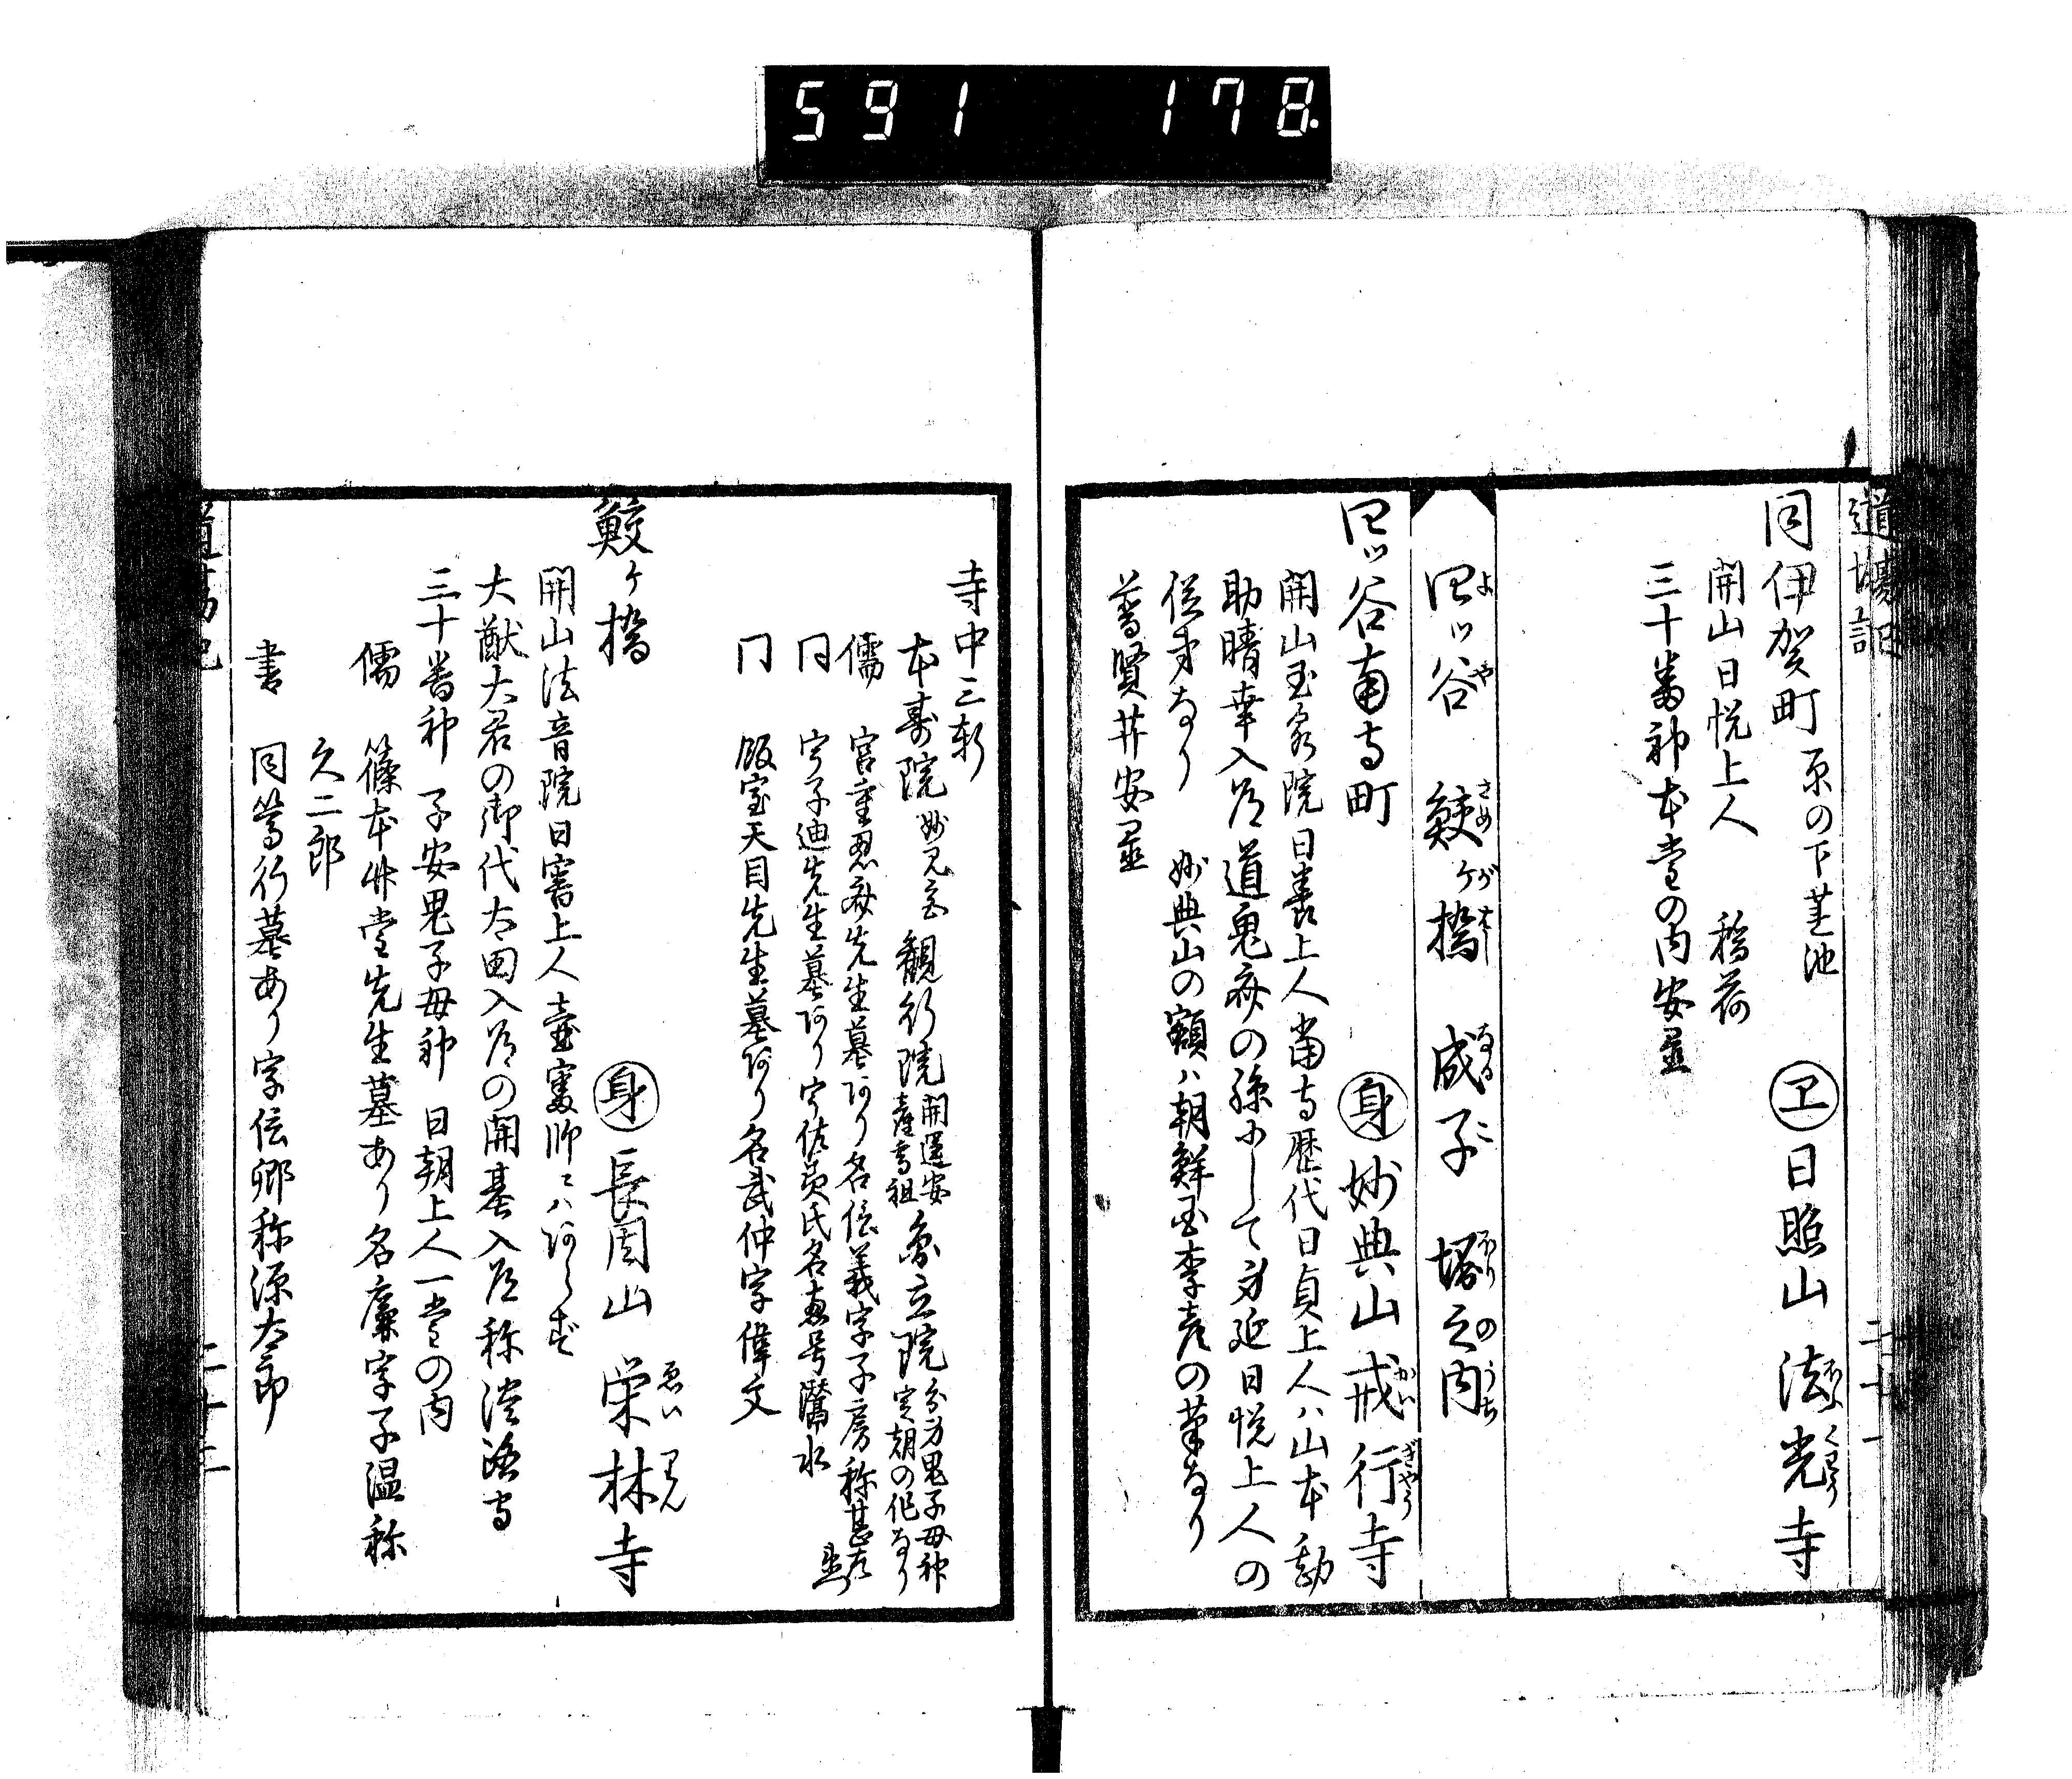 591 178.
道場記
同伊賀町 原の下蓮池 ヱ 日照山法光寺
開山日悦上人 稲荷
三十番神本堂の内安置
四ッ谷 鮫ヶ橋 成子 堀之内
四ッ谷南寺町 身 妙典山戒行寺
開山玉泉院日養上人当寺歴代日貞上人ハ山本勘
助晴幸入道道鬼斎の孫にして身延日悦上人の
従弟なり 妙典山の額ハ朝鮮国李彦の筆なり
普賢菩薩安置
寺中三軒
本寿院 妙見宮 観行院 開運安産高祖 立院 鬼子母神 定朝の作なり
儒 宮重忍斎先生墓あり名信義字子房称甚左
同 宇子迪先生墓あり宇佐美氏名恵号灊水
同 飯室天目先生墓あり名武仲字偉文
鮫ヶ橋 身 長周山栄林寺
開山法音院日審上人 壷審師ニハあらず
大猷大君の御代太田入道の開基入道称
三十番神 子安鬼子母神 日朝上人一堂の内
儒 篠本竹堂先生墓あり名廉字子温称
久二郎
書 同篤行墓あり字伝卿称源太郎